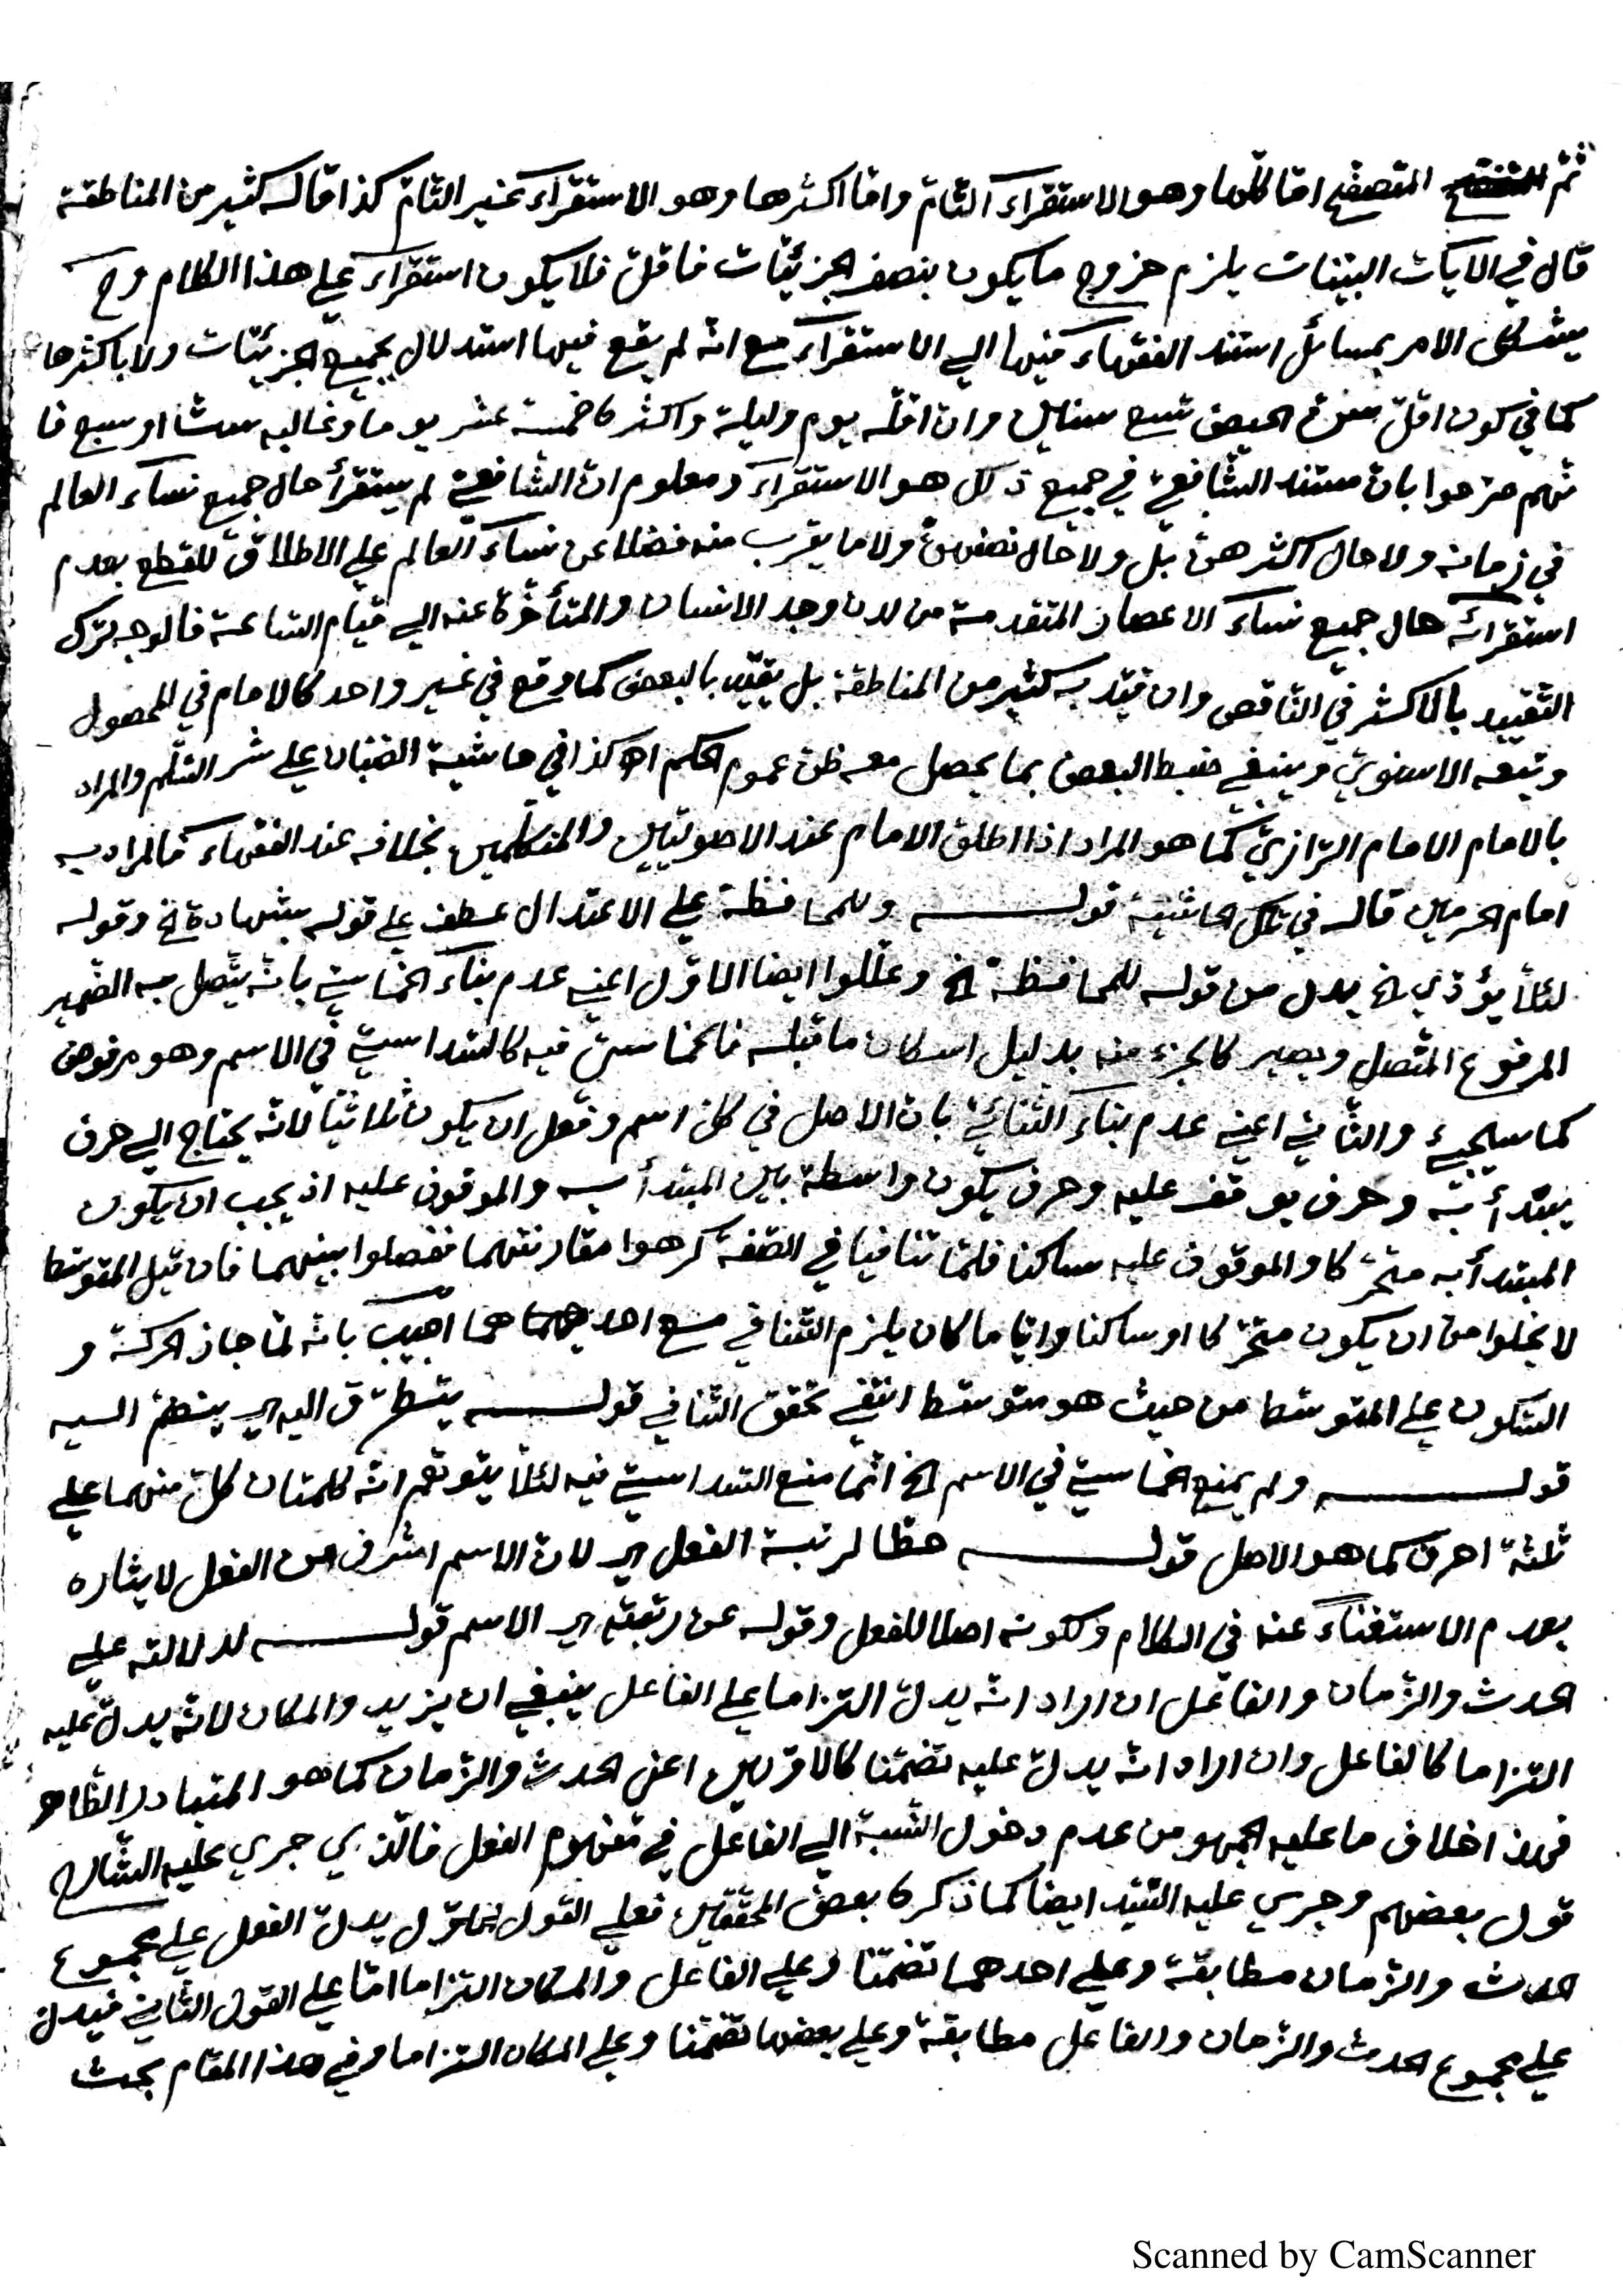 ثم المتصفح اما كلها وهو الاستقراء التام واما اكثرها وهو الاستقراء غير التام كذا قاله كثير من المناطقة
قال في الايات البينات يلزم خروج ما يكون بنصف الجزئيات فاقل فلا يكون استقراء على هذا الكلام وح
يشكل الامر بمسائل استند الفقهاء فيها الى الاستقراء مع انه لم يقع فيها استدلال بجميع الجزئيات ولا باكثرها
كما في كون اقل سن الحيض تسع سنين وان اقله يوم وليلة واكثره خمسة عشر يوما وغالبه ست او سبع فا
نهم صرحوا بان مستند الشافعي في جميع ذلك هو الاستقراء ومعلوم ان الشافعي لم يستقرأ حال جميع نساء العالم
في زمانه ولا حال اكثرهن بل ولا حال نصفهن ولا ما يقرب منه فضلا عن نساء العالم على الاطلاق للقطع بعدم
استقرائه حال جميع نساء الاعصار المتقدمة من لدن وجد الانسان والمتأخرة عنه الى قيام الساعة فالوجه ترك
التقييد بالاكثر في الناقص وان قيد به كثير من المناطقة بل يقيد بالبعض كما وقع في غير واحد كالامام في المحصول
وتبعه الاسنوي وينبغي ضبط البعض بما يحصل معه ظن عموم الحكم اه كذا في حاشية الصبان على شر السلم والمراد
بالامام الامام الرازي كما هو المراد اذا اطلق الامام عند الاصوليين والمتكلمين بخلافه عند الفقهاء فالمراد به
امام الحرمين قاله في تلك الحاشية قوله وللمحافظة على الاعتدال عطف على قوله بشهادة الخ وقوله
لئلا يؤدي الخ بدل من قوله للمحافظة الخ وعللوا ايضا الاول اعني عدم بناء الخماسي بانه يتصل به الضمير
المرفوع المتصل ويصير كالجزء منه بدليل اسكان ما قبله فالخماسي فيه كالسداسي في الاسم وهو مرفوض
كما سيجيء والثاني اعني عدم بناء الثنائي بان الاصل في كل اسم وفعل ان يكون ثلاثيا لانه يحتاج الى حرف
يبتدأ به وحرف يوقف عليه وحرف يكون واسطة بين المبتدأ به والموقوف عليه اذ يجب ان يكون
المبتدأ به متحركا والموقوف عليه ساكنا فلما تنافيا في الصفة كرهوا مقارنتهما ففصلوا بينهما فان قيل المتوسط
لا يخلوا من ان يكون متحركا او ساكنا وايا ما كان يلزم التنافي مع احدهما اجيب بانه لما جاز الحركة و
السكون على المتوسط من حيث هو متوسط انتفى تحقق التنافي قوله يتطرق اليه اي ينضم اليه
قوله ولم يمنع الخماسي في الاسم الخ انما منع السداسي فيه لئلا يتوهم انه كلمتان كل منهما على
ثلثة احرف كما هو الاصل قوله حطا لرتبة الفعل اي لان الاسم اشرف من الفعل لايثاره
بعدم الاستغناء عنه في الكلام ولكونه اصلا للفعل وقوله عن رتبته اي الاسم قوله لدلالته على
الحدث والزمان والفاعل ان اراد انه يدل التزاما على الفاعل ينبغي ان يزيد والمكان لانه يدل عليه
التزاما كالفاعل وان اراد انه يدل عليه تضمنا كالاولين اعني الحدث والزمان كما هو المتبادر الظاهر
فهذا خلاف ما عليه الجمهور من عدم دخول النسبة الى الفاعل في مفهوم الفعل فالذي جرى عليه الشارح
قول بعضهم وجرى عليه السيد ايضا كما ذكره بعض المحققين فعلى القول الاول يدل الفعل على مجموع
الحدث والزمان مطابقة وعلى احدهما تضمنا وعلى الفاعل والمكان التزاما اما على القول الثاني فيدل
على مجموع الحدث والزمان والفاعل مطابقة وعلى بعضها تضمنا وعلى المكان التزاما وفي هذا المقام بحث
Scanned by CamScanner